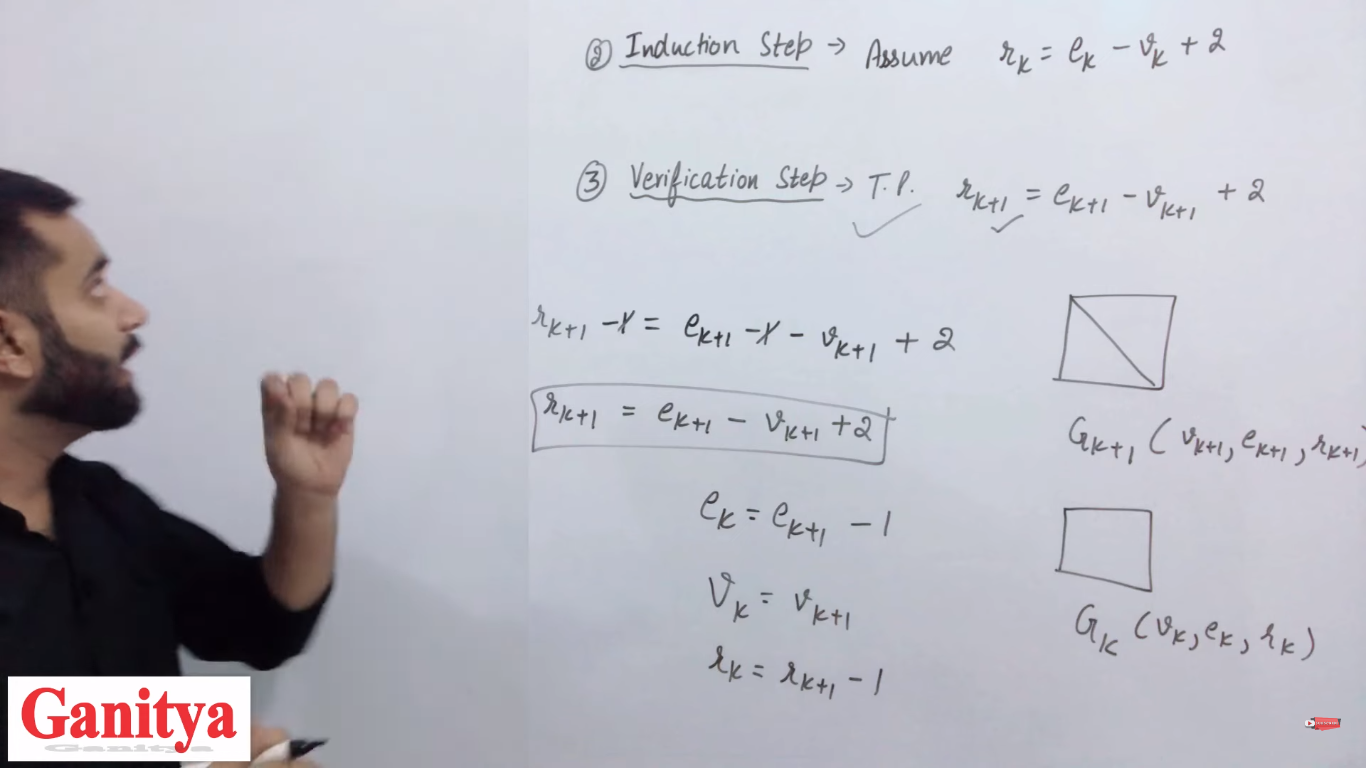 ② Induction Step → Assume r_k = e_k - v_k + 2
③ Verification Step → T.P. r_{k+1} = e_{k+1} - v_{k+1} + 2
r_{k+1} - 1 = e_{k+1} - 1 - v_{k+1} + 2
r_{k+1} = e_{k+1} - v_{k+1} + 2
G_{k+1} (v_{k+1}, e_{k+1}, r_{k+1})
e_k = e_{k+1} - 1
v_k = v_{k+1}
r_k = r_{k+1} - 1
G_k (v_k, e_k, r_k)
Ganitya
SUBSCRIBE